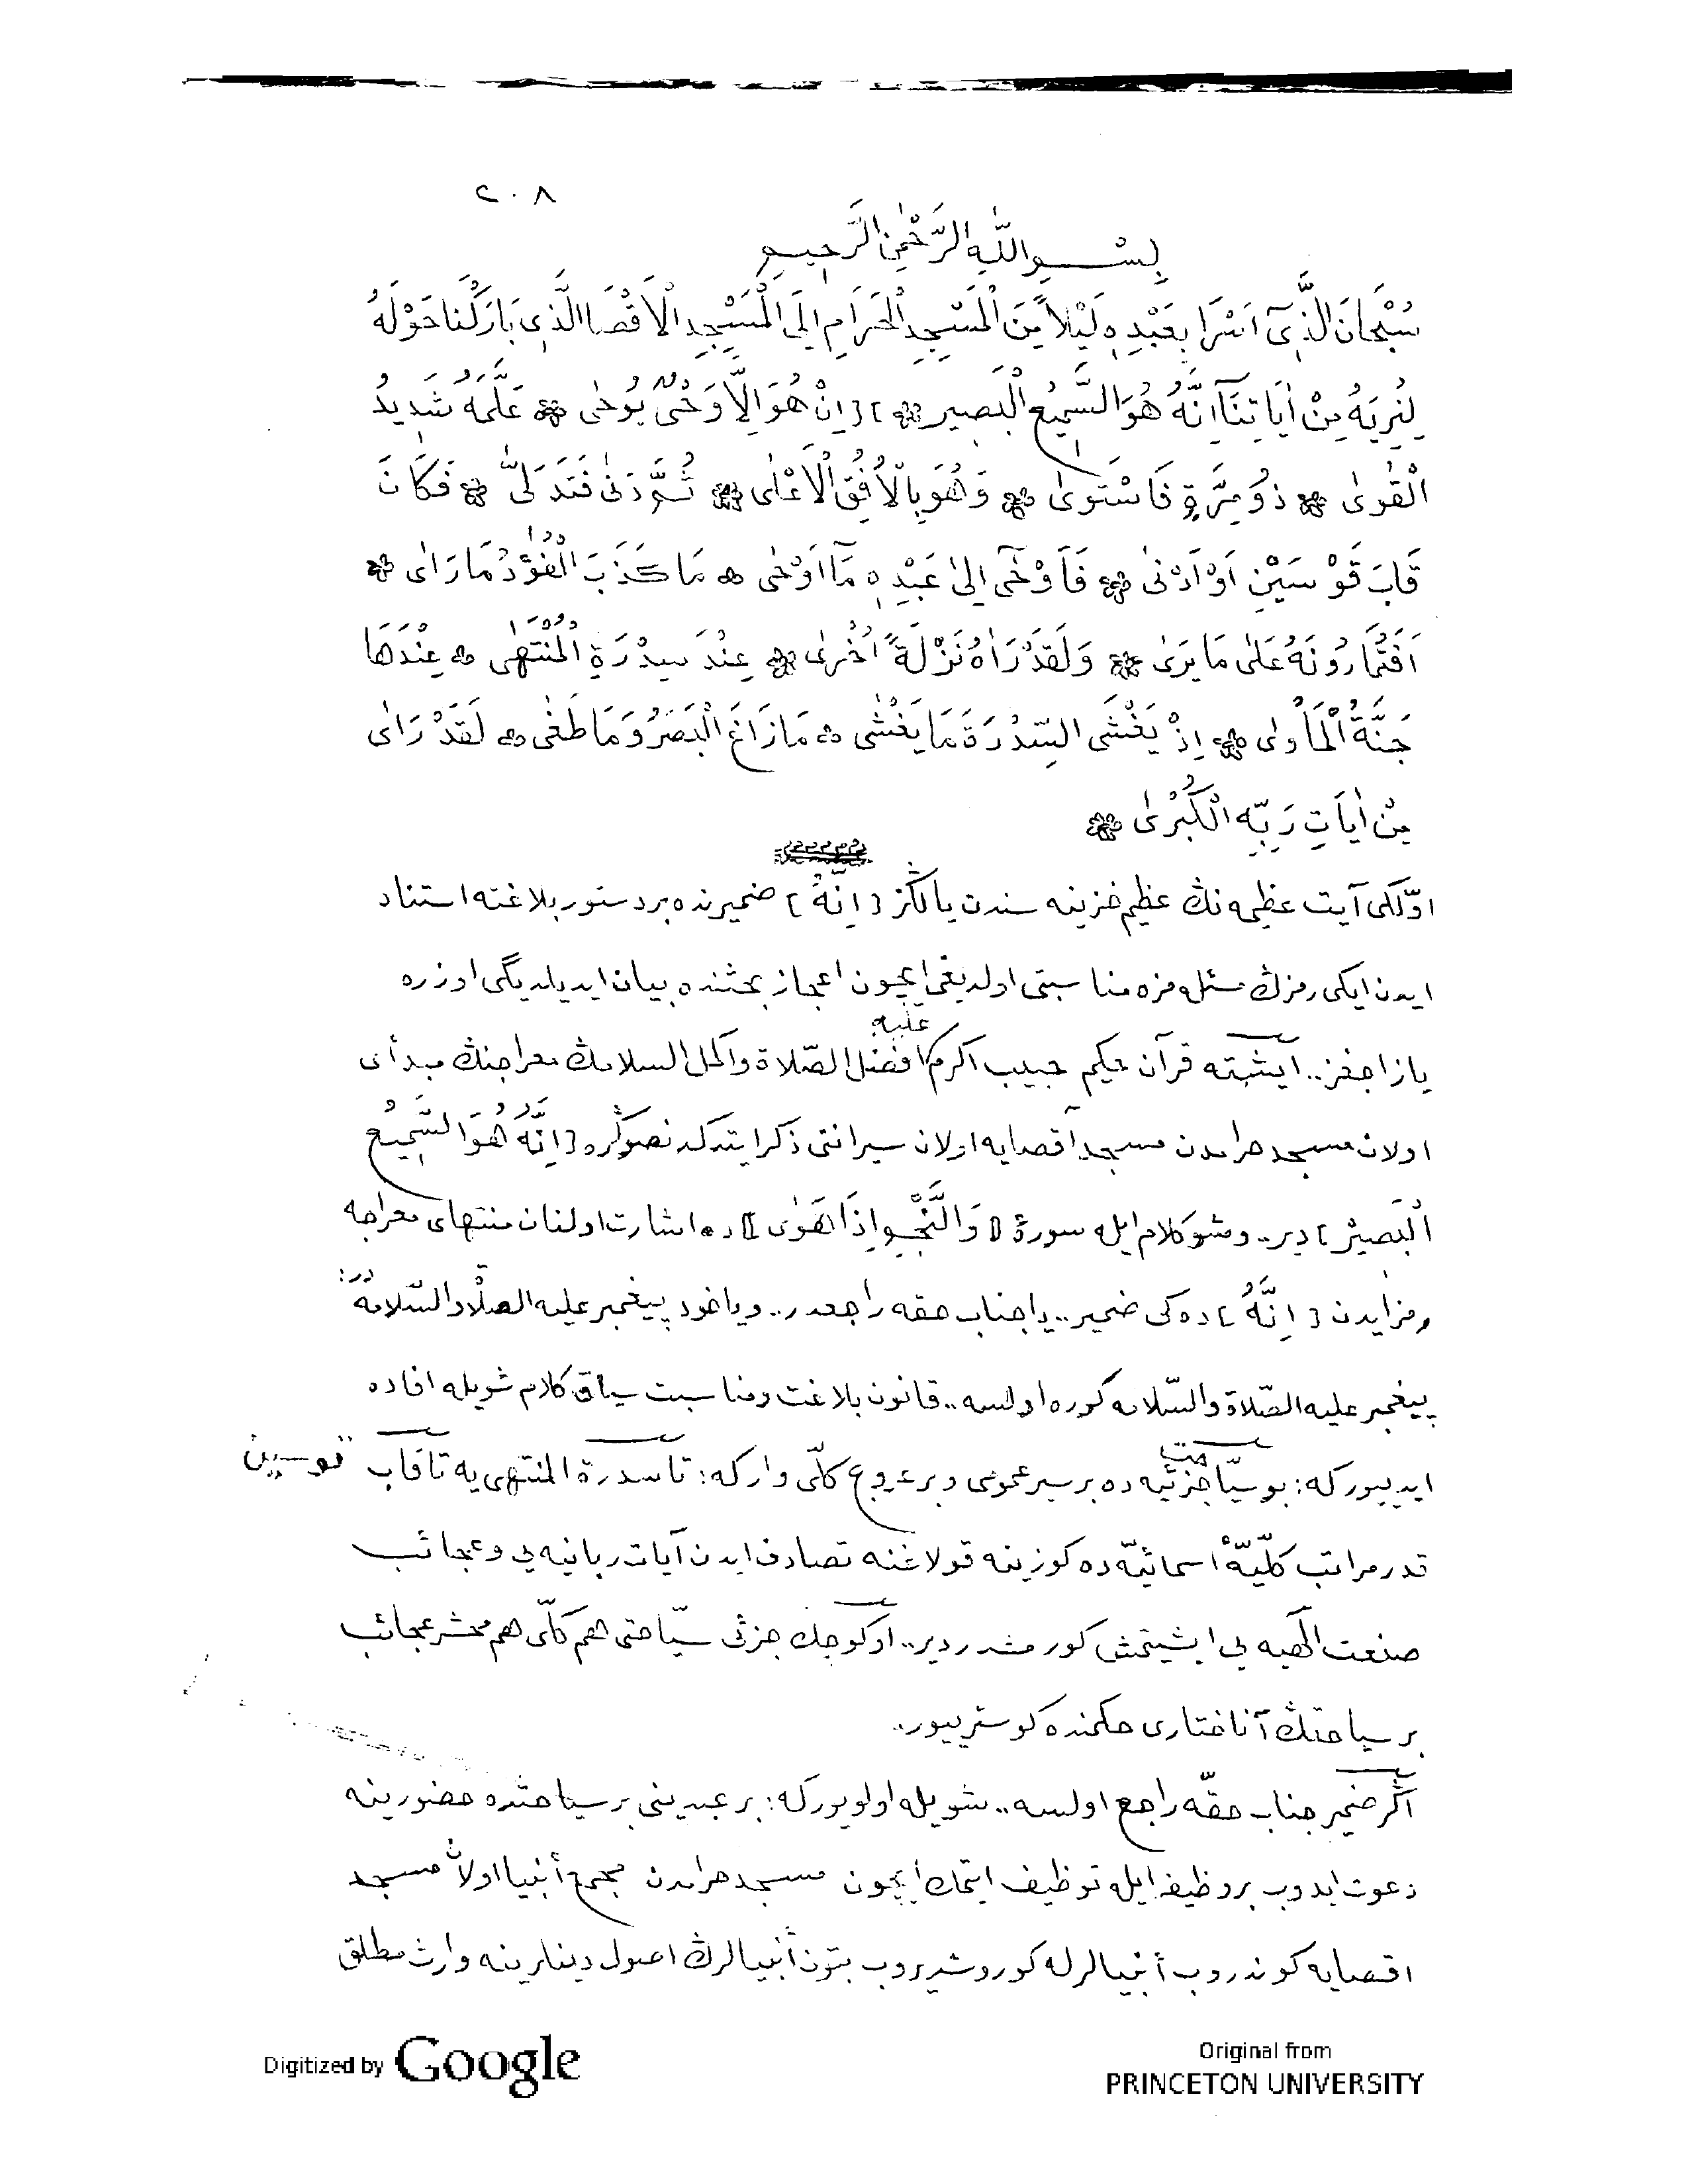 ٢٠٨
بِسْمِ اللّٰهِ الرَّحْمٰنِ الرَّحِيمِ
سُبْحَانَ الَّذِىٓ اَسْرَا بِعَبْدِهِ لَيْلًا مِنَ الْمَسْجِدِ الْحَرَامِ اِلَى الْمَسْجِدِ الْاَقْصَا الَّذِى بَارَكْنَا حَوْلَهُ
لِنُرِيَهُ مِنْ اٰيَاتِنَآ اِنَّهُ هُوَ السَّمِيعُ الْبَصِيرُ ❀ ] [ اِنْ هُوَ اِلَّا وَحْىٌ يُوحٰى ❀ عَلَّمَهُ شَدِيدُ
الْقُوٰى ❀ ذُو مِرَّةٍ فَاسْتَوٰى ❀ وَهُوَ بِالْاُفُقِ الْاَعْلٰى ❀ ثُمَّ دَنٰى فَتَدَلّٰى ❀ فَكَانَ
قَابَ قَوْسَيْنِ اَوْ اَدْنٰى ❀ فَاَوْحٰٓى اِلٰى عَبْدِهِ مَٓا اَوْحٰى ❀ مَا كَذَبَ الْفُؤٰدُ مَا رَاٰى ❀
اَفَتُمَارُونَهُ عَلٰى مَا يَرٰى ❀ وَلَقَدْ رَاٰهُ نَزْلَةً اُخْرٰى ❀ عِنْدَ سِدْرَةِ الْمُنْتَهٰى ❀ عِنْدَهَا
جَنَّةُ الْمَاْوٰى ❀ اِذْ يَغْشَى السِّدْرَةَ مَا يَغْشٰى ❀ مَا زَاغَ الْبَصَرُ وَمَا طَغٰى ❀ لَقَدْ رَاٰى
مِنْ اٰيَاتِ رَبِّهِ الْكُبْرٰى ❀
اوّلكى آيت عظيمه نڭ عظيم خزينه سندن يالڭز [ اِنَّهُ ] ضميرنده بر دستور بلاغته استناد
ايدن ايكى رمزڭ مسئله مزه مناسبتى اولديغى ايچون اعجاز بحثنده بيان ايديلديگى اوزره
يازاجغز.. ايشته قرآن حكيم حبيب اكرم عليه افضل الصّلاة واكمل السلامڭ معراجنڭ مبدأى
اولان مسجد حرامدن مسجد اقصايه اولان سيرانى ذكر ايتدكدنصوڭره [ اِنَّهُ هُوَ السَّمِيعُ
الْبَصِيرُ ] دير.. وشو كلام ايله سورهٔ [ وَالنَّجْمِ اِذَا هَوٰى ] ده اشارت اولنان منتهاى معراجه
رمز ايدن [ اِنَّهُ ] ده كى ضمير.. يا جناب حقه راجعدر.. وياخود پيغمبر عليه الصلاة والسّلامه در:
پيغمبر عليه الصّلاة والسّلامه گوره اولسه.. قانون بلاغت ومناسبت سياق كلام شويله افاده
ايدييور كه: بو سياحت جزئيه ده بر سير عمومى وبر عروج كلّى وار كه: تا سدرة المنتهى يه تا قاب قوسين
قدر مراتب كلّيّهٔ اسمائيّه ده گوزينه قولاغنه تصادف ايدن آيات ربانيه يى وعجائب
صنعت الٰهيه يى ايشيتمش گورمشدر دير.. او كوچك جزئى سيّاحتى هم كلّى هم محشر عجائب
بر سياحتڭ آناختارى حكمنده گوسترييور..
اگر ضمير جناب حقّه راجع اولسه.. شويله اولويور كه: بر عبدينى بر سياحتده حضورينه
دعوت ايدوب بر وظيفه ايله توظيف ايتمك ايچون مسجد حرامدن مجمع أنبيا اولان مسجد
اقصايه گوندروب أنبيالرله گوروشديروب بتون أنبيالرڭ اصول دينلرينه وارث مطلق
Digitized by Google
Original from
PRINCETON UNIVERSITY